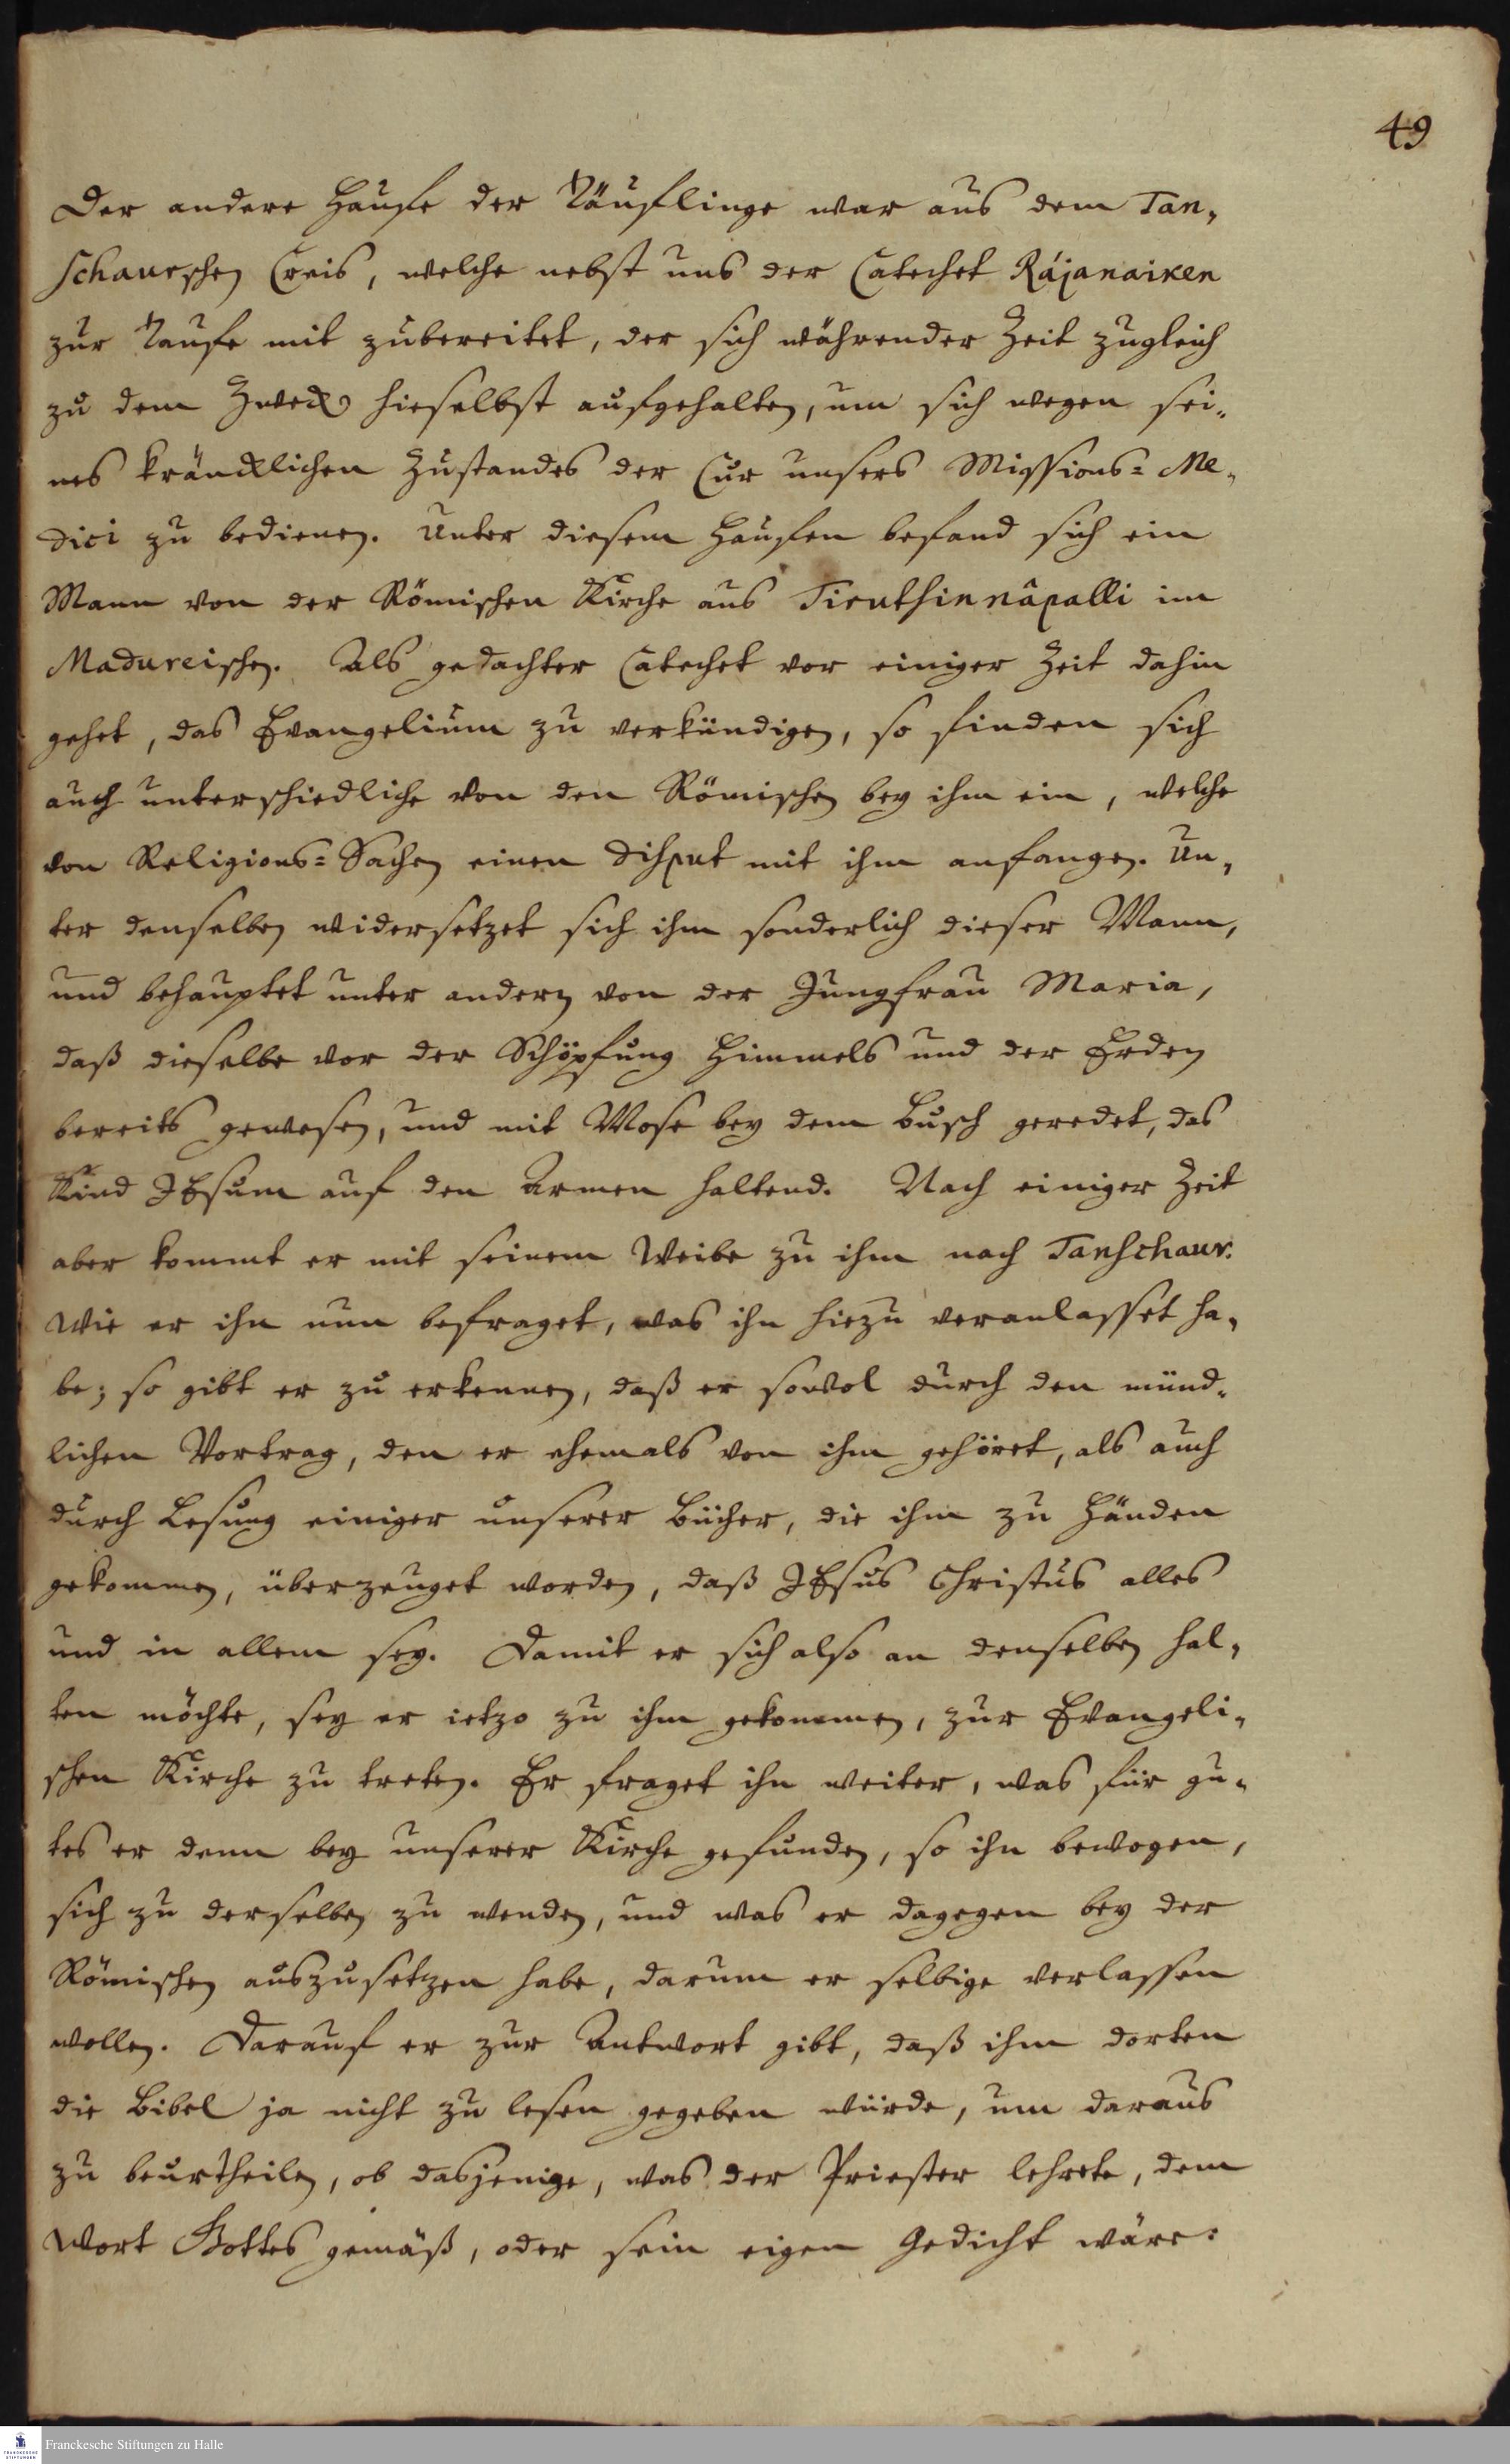 49
Der andere Haufe der Täuflinge war aus dem Tan-
schaurschen Creis, welche nebst uns der Catechet Rájanaiken
zur Taufe mit zubereitet, der sich währender Zeit zugleich
zu dem Zweck hieselbst aufgehalten, um sich wegen sei-
nes kräncklichen Zustandes der Cur unsers Missions= Me-
dici zu bedienen. Unter diesem Haufen befand sich ein
Mann von der Römischen Kirche aus Tirutsinnâpalli im
Madureischen. Als gedachter Catechet vor einiger Zeit dahin
gehet, das Evangelium zu verkündigen, so finden sich
auch unterschiedliche von den Römischen bey ihm ein, welche
von Religions= Sachen einen Disput mit ihm anfangen. Un-
ter denselben widersetzet sich ihm sonderlich dieser Mann,
und behauptet unter andern von der Jungfrau Maria,
daß dieselbe vor der Schöpfung Himmels und der Erden
bereits gewesen, und mit Mose bey dem Busch geredet, das
Kind JEsum auf den Armen haltend. Nach einiger Zeit
aber kommt er mit seinem Weibe zu ihm nach Tanschaur.
Wie er ihn nun befraget, was ihn hiezu veranlasset ha-
be; so gibt er zu erkennen, daß er sowol durch den münd-
lichen Vortrag, den er ehemals von ihm gehöret, als auch
durch Lesung einiger unserer Bücher, die ihm zu Händen
gekommen, überzeuget worden, daß JEsus Christus alles
und in allem sey. Damit er sich also an denselben hal-
ten möchte, sey er ietzo zu ihm gekommen, zur Evangeli-
schen Kirche zu treten. Er fraget ihn weiter, was für gu-
tes er denn bey unserer Kirche gefunden, so ihn bewogen,
sich zu derselben zu wenden, und was er dagegen bey der
Römischen auszusetzen habe, darum er selbige verlassen
wollen. Darauf er zur Antwort gibt, daß ihm dorten
die Bibel ja nicht zu lesen gegeben würde, um daraus
zu beurtheilen, ob dasjenige, was der Priester lehrete, dem
Wort Gottes gemäß, oder sein eigen Gedicht wäre:
Franckesche Stiftungen zu Halle